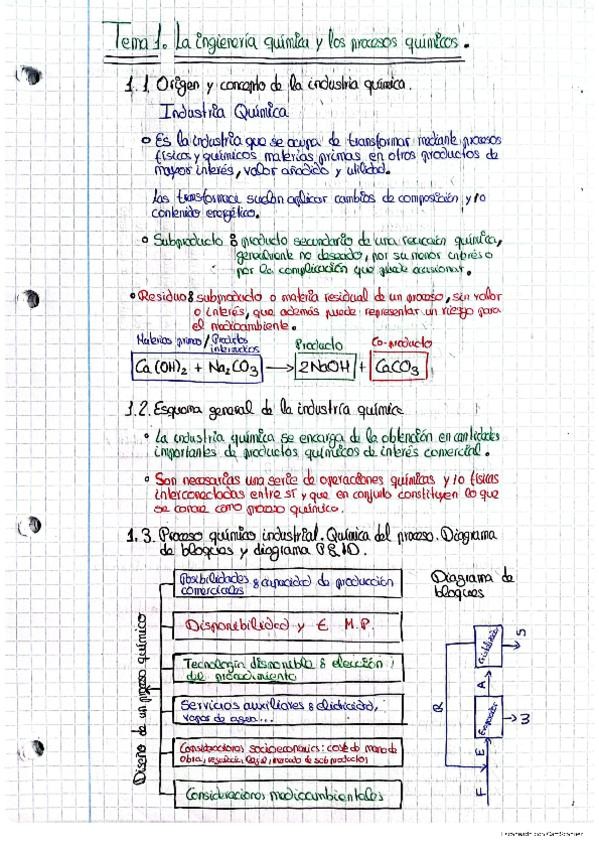 Tema 1. La ingienería química y los procesos químicos.
1.1 Origen y concepto de la industria química.
Industria Química
Es la industria que se ocupa de transformar mediante procesos
físicos y químicos materias primas en otros productos de
mayor interés, valor añadido y utilidad.
Las suelen aplicar cambios de composición y/o
contenido energético.
Subproducto: producto secundario de una reacción química,
generalmente no deseado, por su menor interés o
por la complicación que puede ocasionar.
Residuo: subproducto o materia residual de un proceso, sin valor
o interés, que además puede representar un riesgo para
el medioambiente.
Materias primas / Productos
Producto
Co-producto
Ca(OH)₂ + Na₂CO₃ → 2NaOH + CaCO₃
1.2. Esquema general de la industria química
La industria química se encarga de la obtención en cantidades
importantes de productos químicos de interés comercial.
Son necesarias una serie de operaciones químicas y/o físicas
interconectadas entre sí y que en conjunto constituyen lo que
se conoce como proceso químico.
1.3. Proceso químico industrial. Química del proceso. Diagrama
de bloques y diagrama P&ID.
Diseño de un proceso químico
Posibilidades: capacidad de producción
comerciales
Disponibilidad y € M.P.
Tecnología disponible: elección
del procedimiento
Servicios auxiliares: electricidad,
vapor de agua...
Consideraciones socioeconómicas: coste de mano de
obra, legal, mercado de subproductos
Consideraciones medioambientales
Diagrama de
bloques
S
A
R
Evaporador
B
E
F